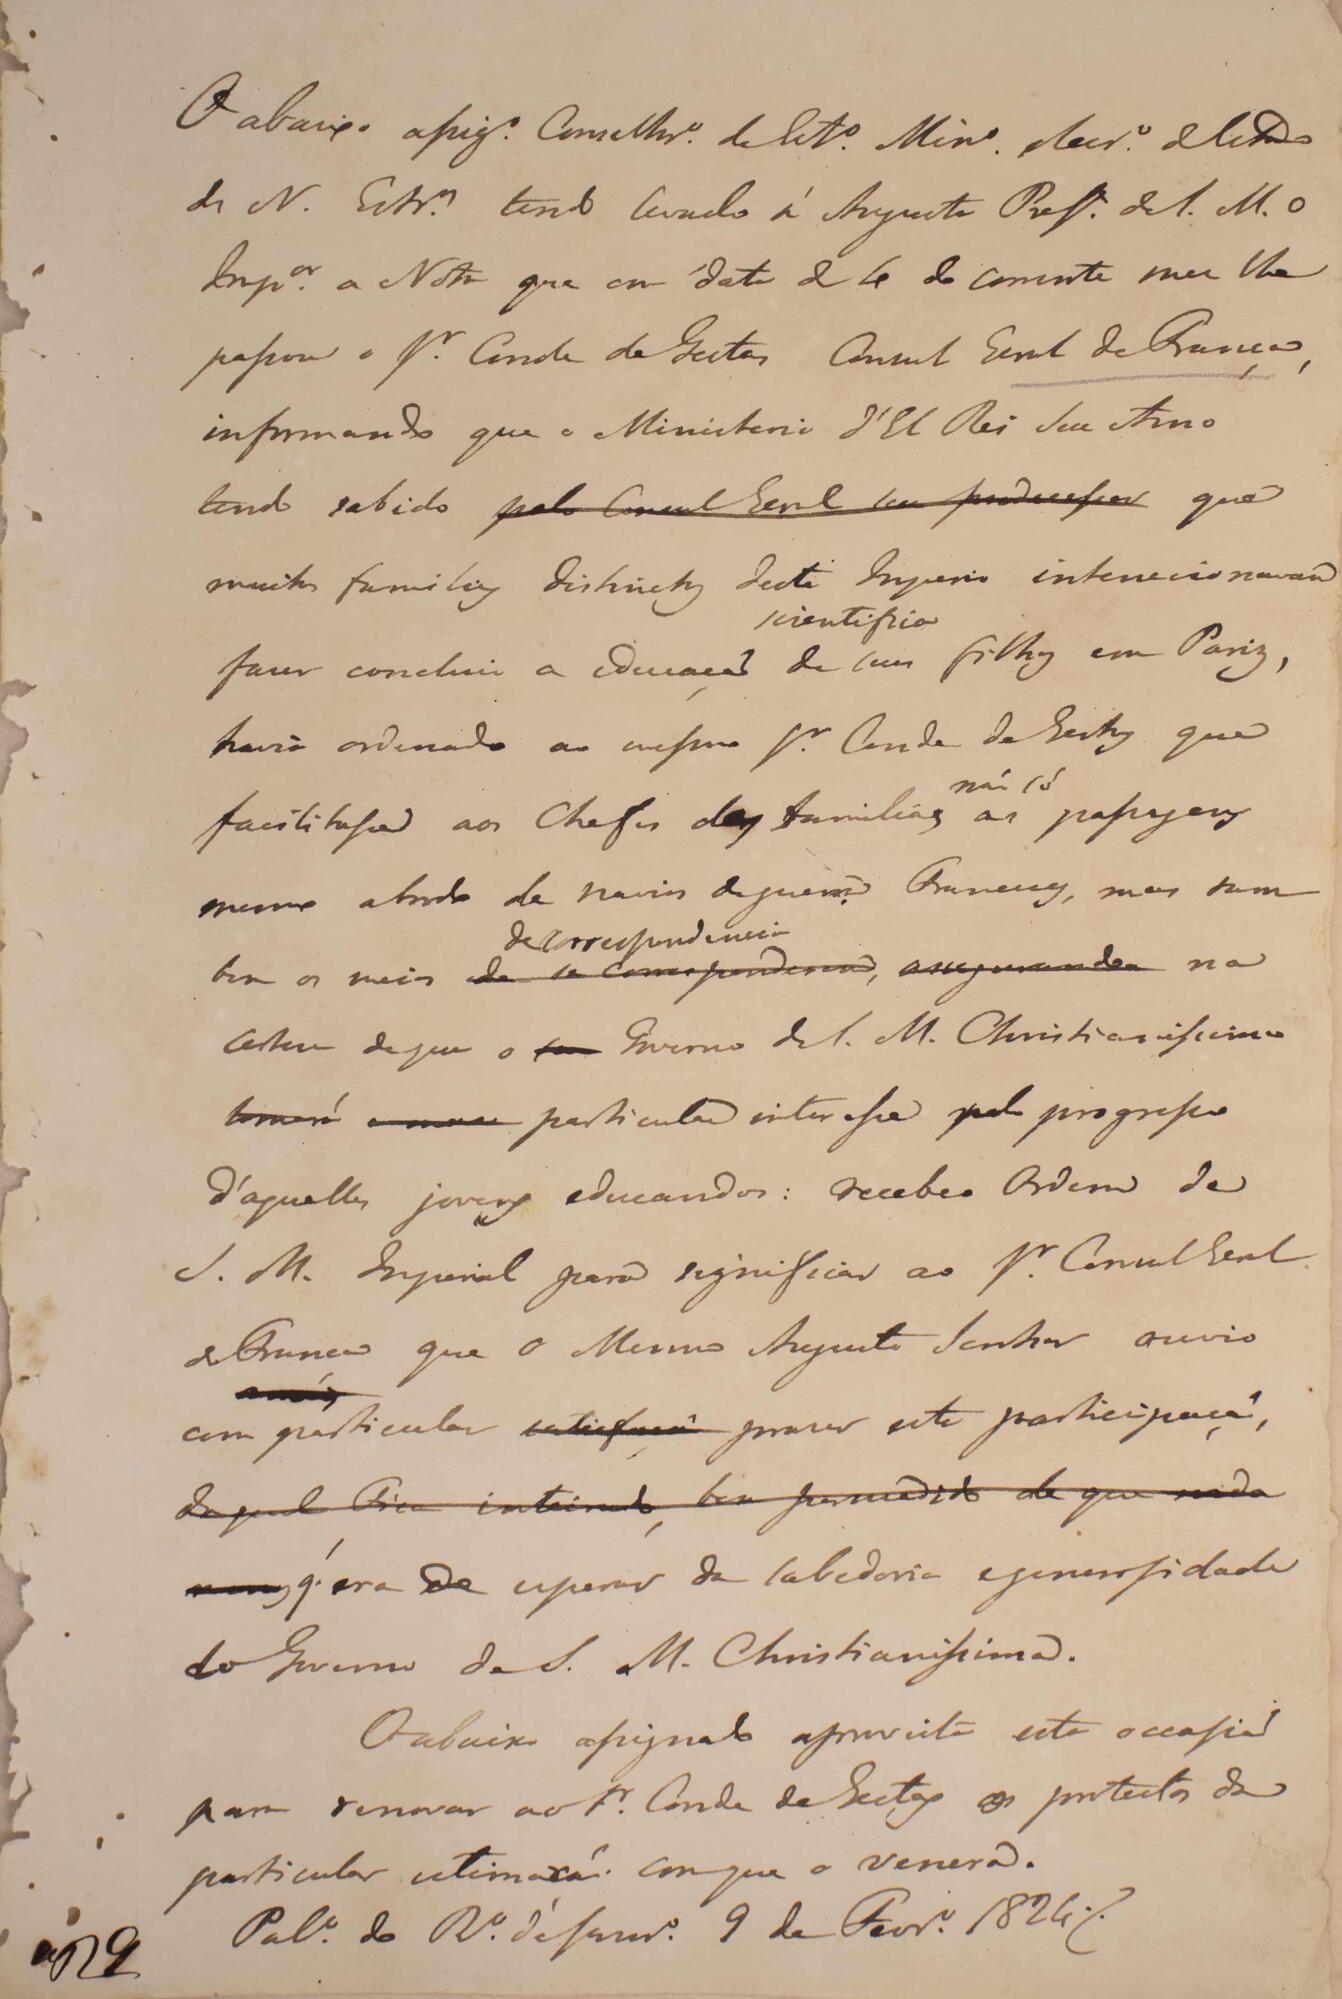 O abaixo assig.º Conselhr.º de Est.º Min.º e Secr.º d'Estado
de N. Estr.os tendo levado á Augusta Pres.ª de S. M. o
Imp.or a Nota que em data de 4 do corrente mez lhe
passou o Sr. Conde de Gestas Consul Geral de França,
informando que o Ministerio d'El Rei Seu Amo
tendo sabido pelo Consul Geral seu predecessor que
muitas familias distinctas deste Imperio intencionavam
scientifica
fazer concluir a educação de seus filhos em Pariz,
havia ordenado ao mesmo Sr. Conde de Gestas que
não só
facilitasse aos Chefes das familias as passagens
mesmo abordo de navios de guerra Francezes, mas tam
de correspondencia
bem os meios de se corresponderem, assegurando na
certeza de que o seu Governo de S. M. Christianissima
tomará particular interesse pelo progresso
d'aquelles jovens educandos: recebeo Ordem de
S. M. Imperial para significar ao Sr. Consul Geral
de França que o Mesmo Augusto Senhor ouvio
com particular satisfação prazer esta participação,
da qual Fica inteirado, bem persuadido de que nada
menos q' era de esperar da sabedoria e generosidade
do Governo de S. M. Christianissima.
O abaixo assignado aproveita esta occasião
para renovar ao Sr. Conde de Gestas os protestos da
particular estimação com que o venera.
Pal.º do R.º de Janr.º 9 de Fevr.º 1824